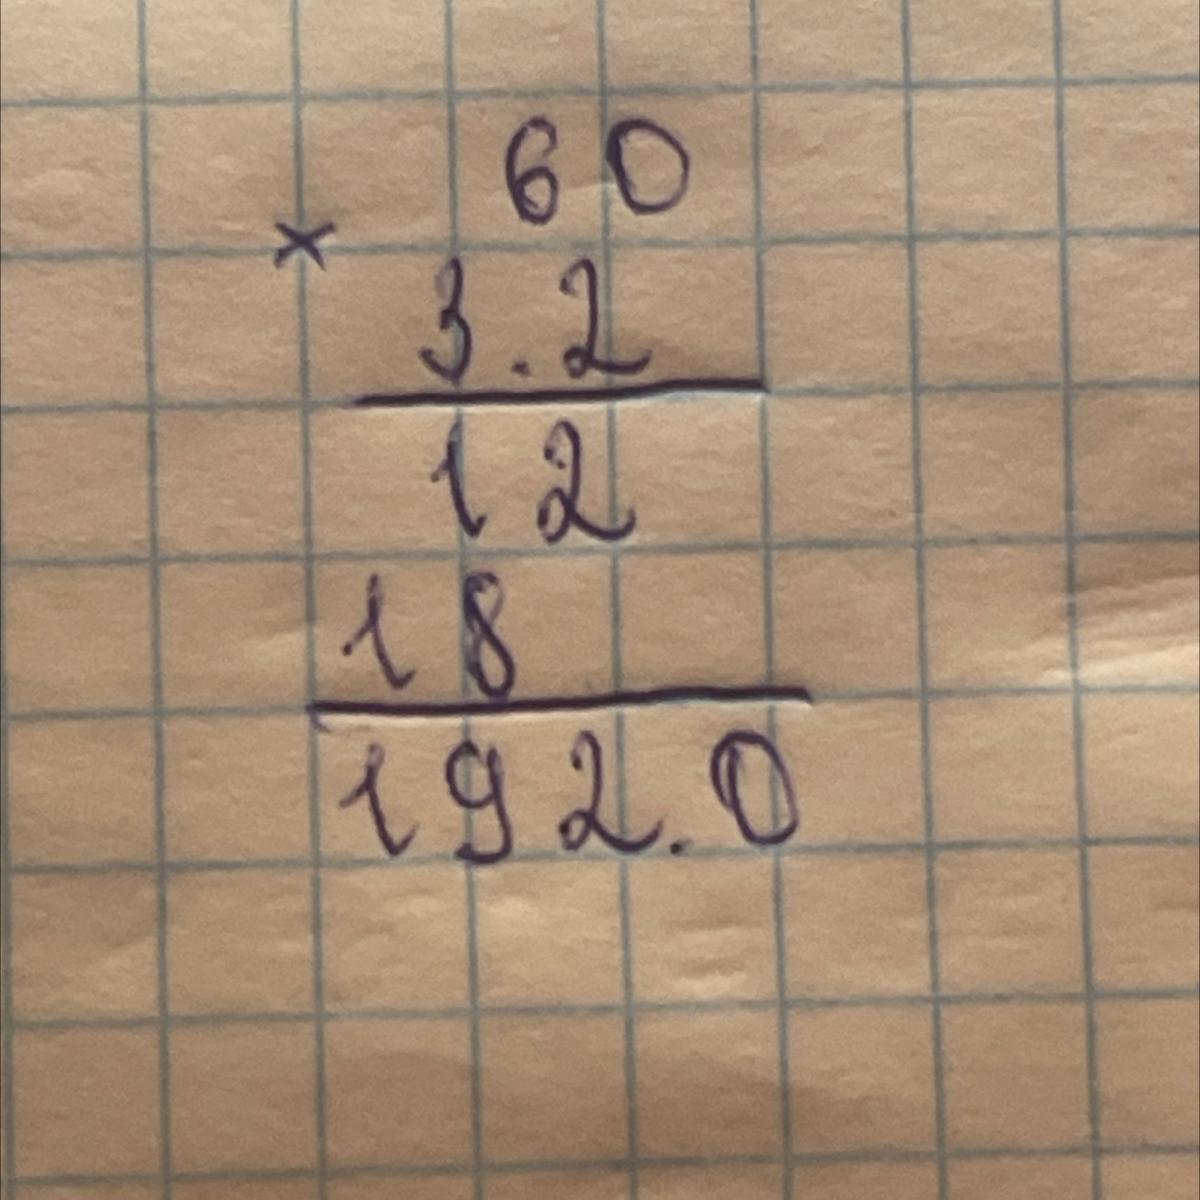 60
×
3.2
12
18
192.0